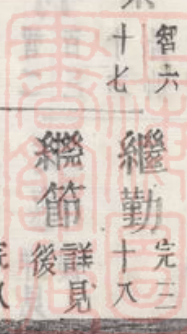 智六
十七
繼勤
完三
十八
繼節
詳見
後